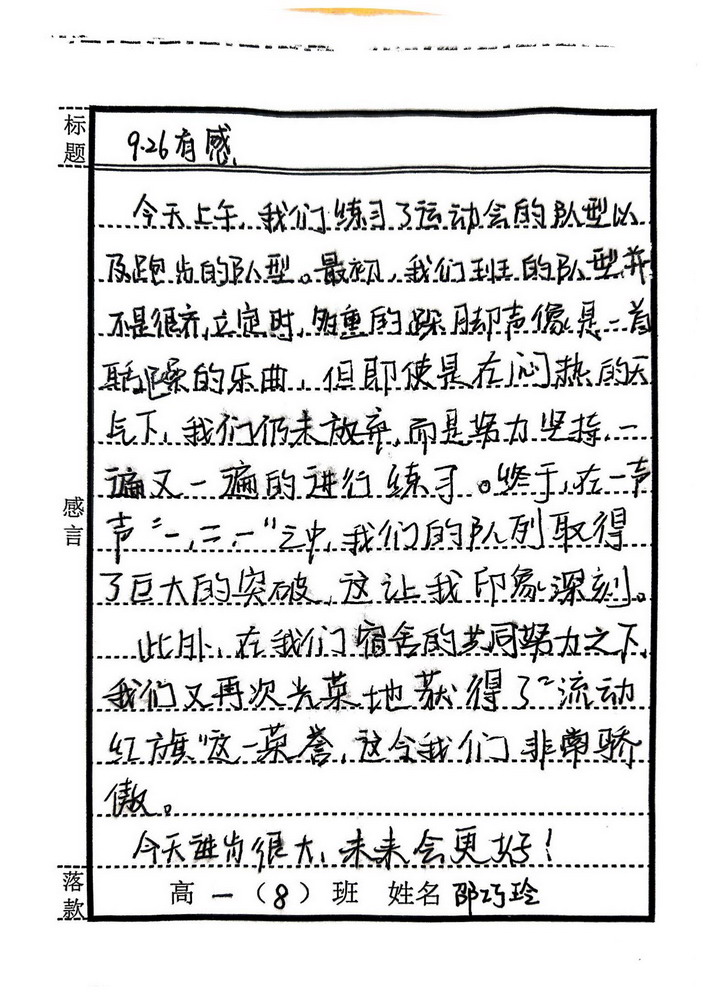 标题
9.26有感
今天上午,我们练习了运动会的队型以
及跑步的队型。最初,我们班的队型并
不是很齐,立定时,的踩脚声像是一首
聒噪的乐曲,但即使是在闷热的天
气下,我们仍未放弃,而是努力坚持,一
遍又一遍的进行练习。终于,在一声
声“一,二,一”之中,我们的队列取得
了巨大的突破,这让我印象深刻。
感言
此外,在我们宿舍的共同努力之下,
我们又再次光荣地获得了“流动
红旗”这一荣誉,这令我们非常骄
傲。
今天进步很大,未来会更好!
落款
高一(8)班 姓名 邵巧玲